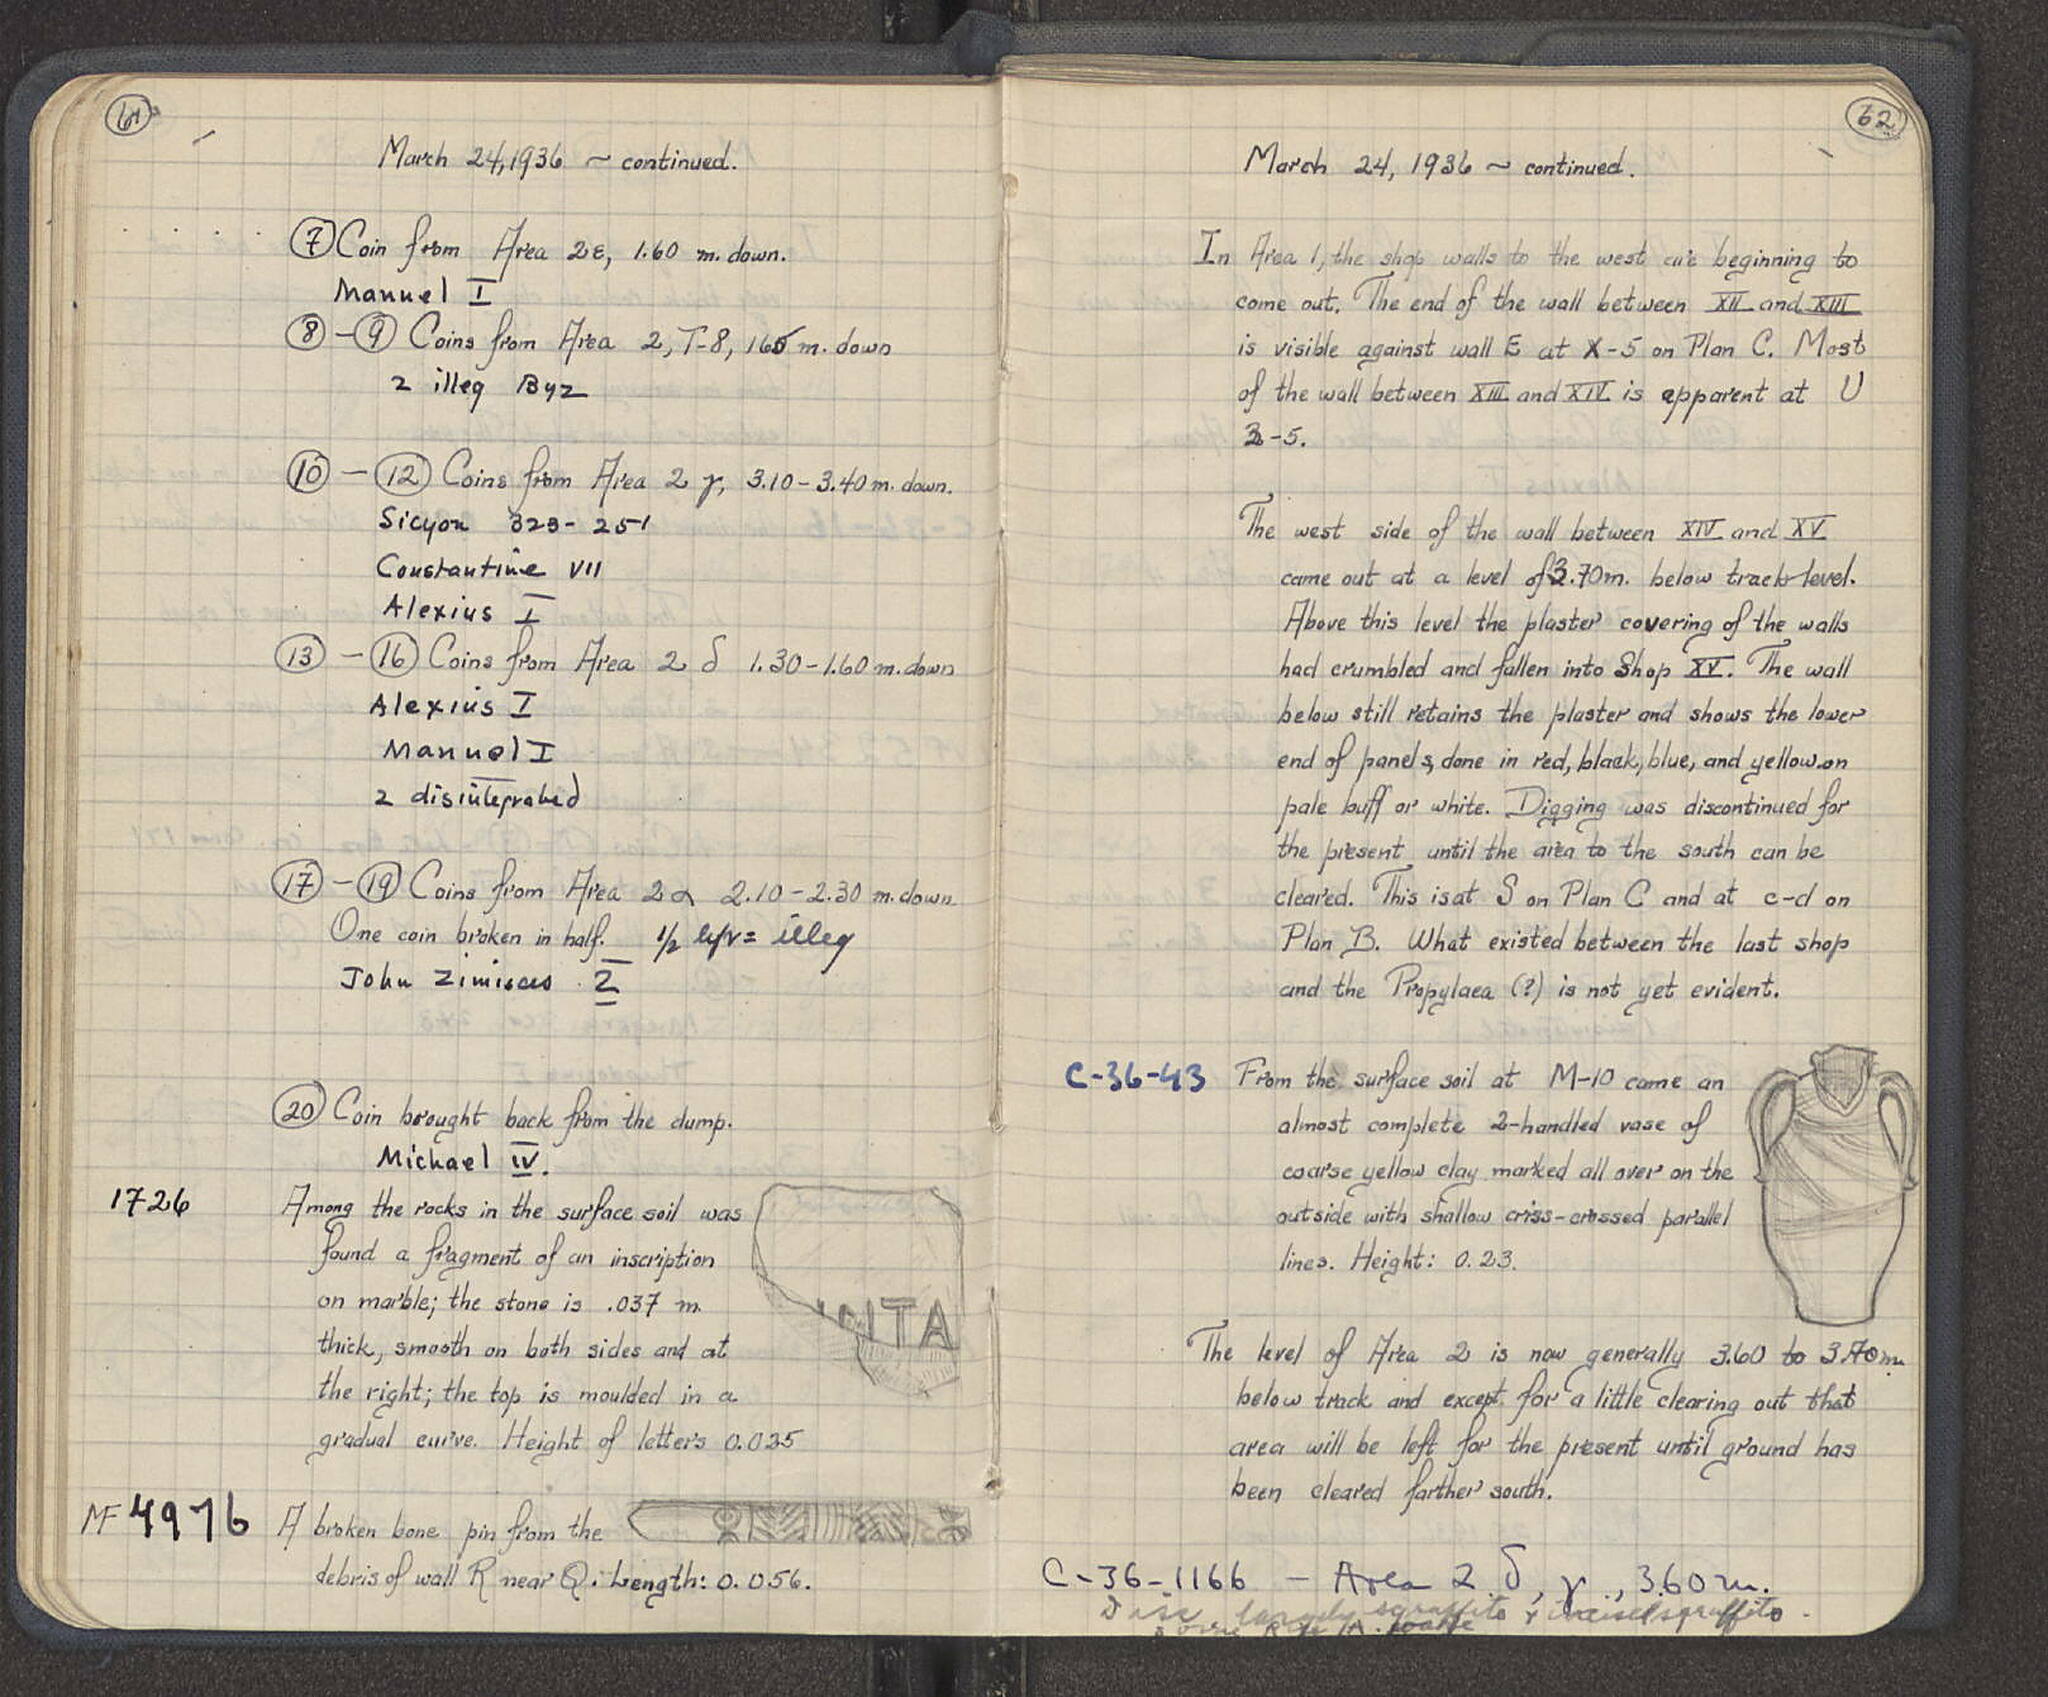 61
March 24, 1936 ~ continued.
7 Coin from Area 2ε, 1.60 m. down.
Manuel I
8 - 9 Coins from Area 2, T-8, 165 m. down
2 illeg Byz
10 - 12 Coins from Area 2 γ, 3.10-3.40 m. down.
Sicyon 323-251
Constantine VII
Alexius I
13 - 16 Coins from Area 2 δ 1.30-1.60 m. down
Alexius I
Manuel I
2 disintegrated
17 - 19 Coins from Area 2 α 2.10-2.30 m. down.
One coin broken in half. 1/2 illeg
John Zimisces 2
20 Coin brought back from the dump.
Michael IV.
1726 Among the rocks in the surface soil was
found a fragment of an inscription
on marble; the stone is .037 m.
thick, smooth on both sides and at
the right; the top is moulded in a
gradual curve. Height of letters 0.025
ITA
MF 4976 A broken bone pin from the
debris of wall R near Q. Length: 0.056.
62
March 24, 1936 ~ continued.
In Area 1, the shop walls to the west are beginning to
come out. The end of the wall between XII and XIII
is visible against wall E at X-5 on Plan C. Most
of the wall between XIII and XIV is apparent at U
2-5.
The west side of the wall between XIV and XV
came out at a level of 3.70m. below track level.
Above this level the plaster covering of the walls
had crumbled and fallen into Shop XV. The wall
below still retains the plaster and shows the lower
end of panels, done in red, black, blue, and yellow on
pale buff or white. Digging was discontinued for
the present until the area to the south can be
cleared. This is at S on Plan C and at c-d on
Plan B. What existed between the last shop
and the Propylaea (?) is not yet evident.
C-36-43 From the surface soil at M-10 came an
almost complete 2-handled vase of
coarse yellow clay marked all over on the
outside with shallow criss-crossed parallel
lines. Height: 0.23.
The level of Area 2 is now generally 3.60 to 3.70 m.
below track and except for a little clearing out that
area will be left for the present until ground has
been cleared farther south.
C-36-1166 - Area 2 δ, γ, 3.60 m.
largely sgraffito + incised sgraffito.